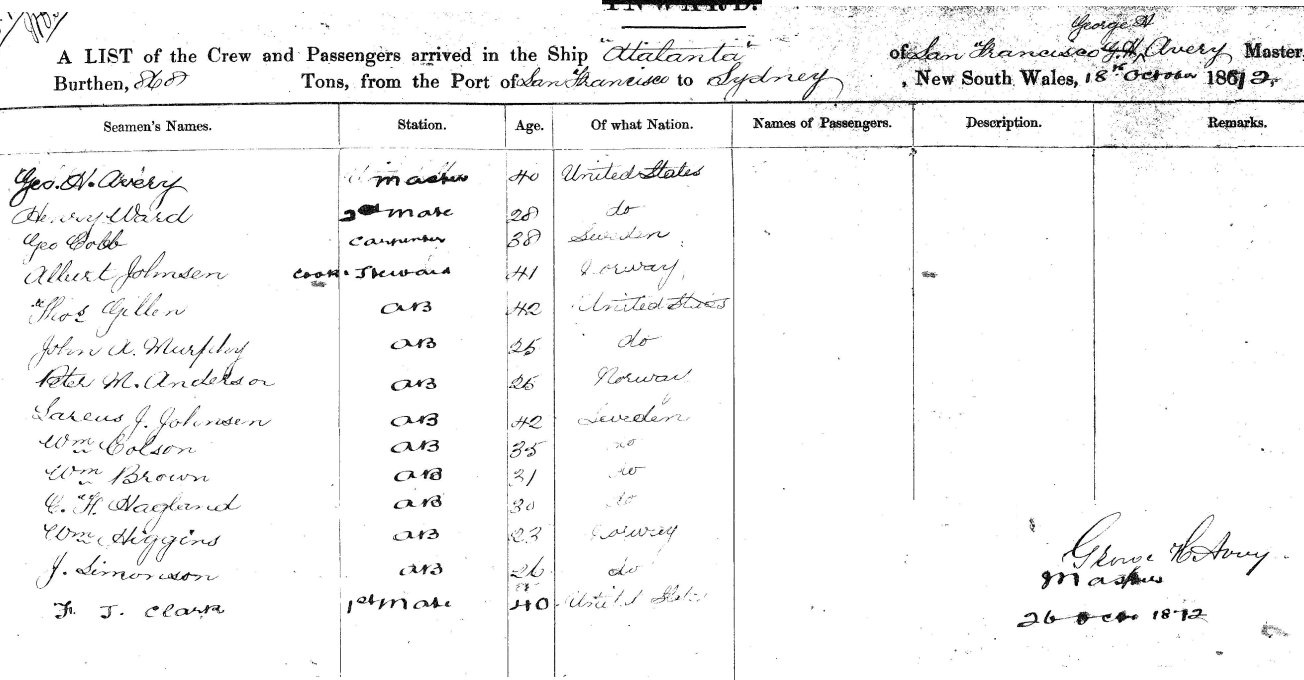 INWARD.
George H
A LIST of the Crew and Passengers arrived in the Ship "Atalanta" of San Francisco G.H. Avery Master,
Burthen, 868 Tons, from the Port of San Francisco to Sydney, New South Wales, 18th October 1872
Seamen's Names. Station. Age. Of what Nation. Names of Passengers. Description. Remarks.
Geo. H. Avery Master 40 United States
Henry Ward 2nd Mate 28 do
Geo Cobb Carpenter 38 Sweden
Albert Johnsen Cook & Steward 41 Norway
Thos Gillen AB 42 United States
John A. Murphy AB 25 do
Peter M. Anderson AB 25 Norway
J. Johnsen AB 42 Sweden
Wm Colson AB 35 do
Wm Brown AB 31 do
C. H. Hagland AB 30 do
Wm Higgins AB 23 Norway
J. Simonson AB 26 do
F. J. Clark 1st Mate 40 United States
George H Avery
Master
26 Oct 1872